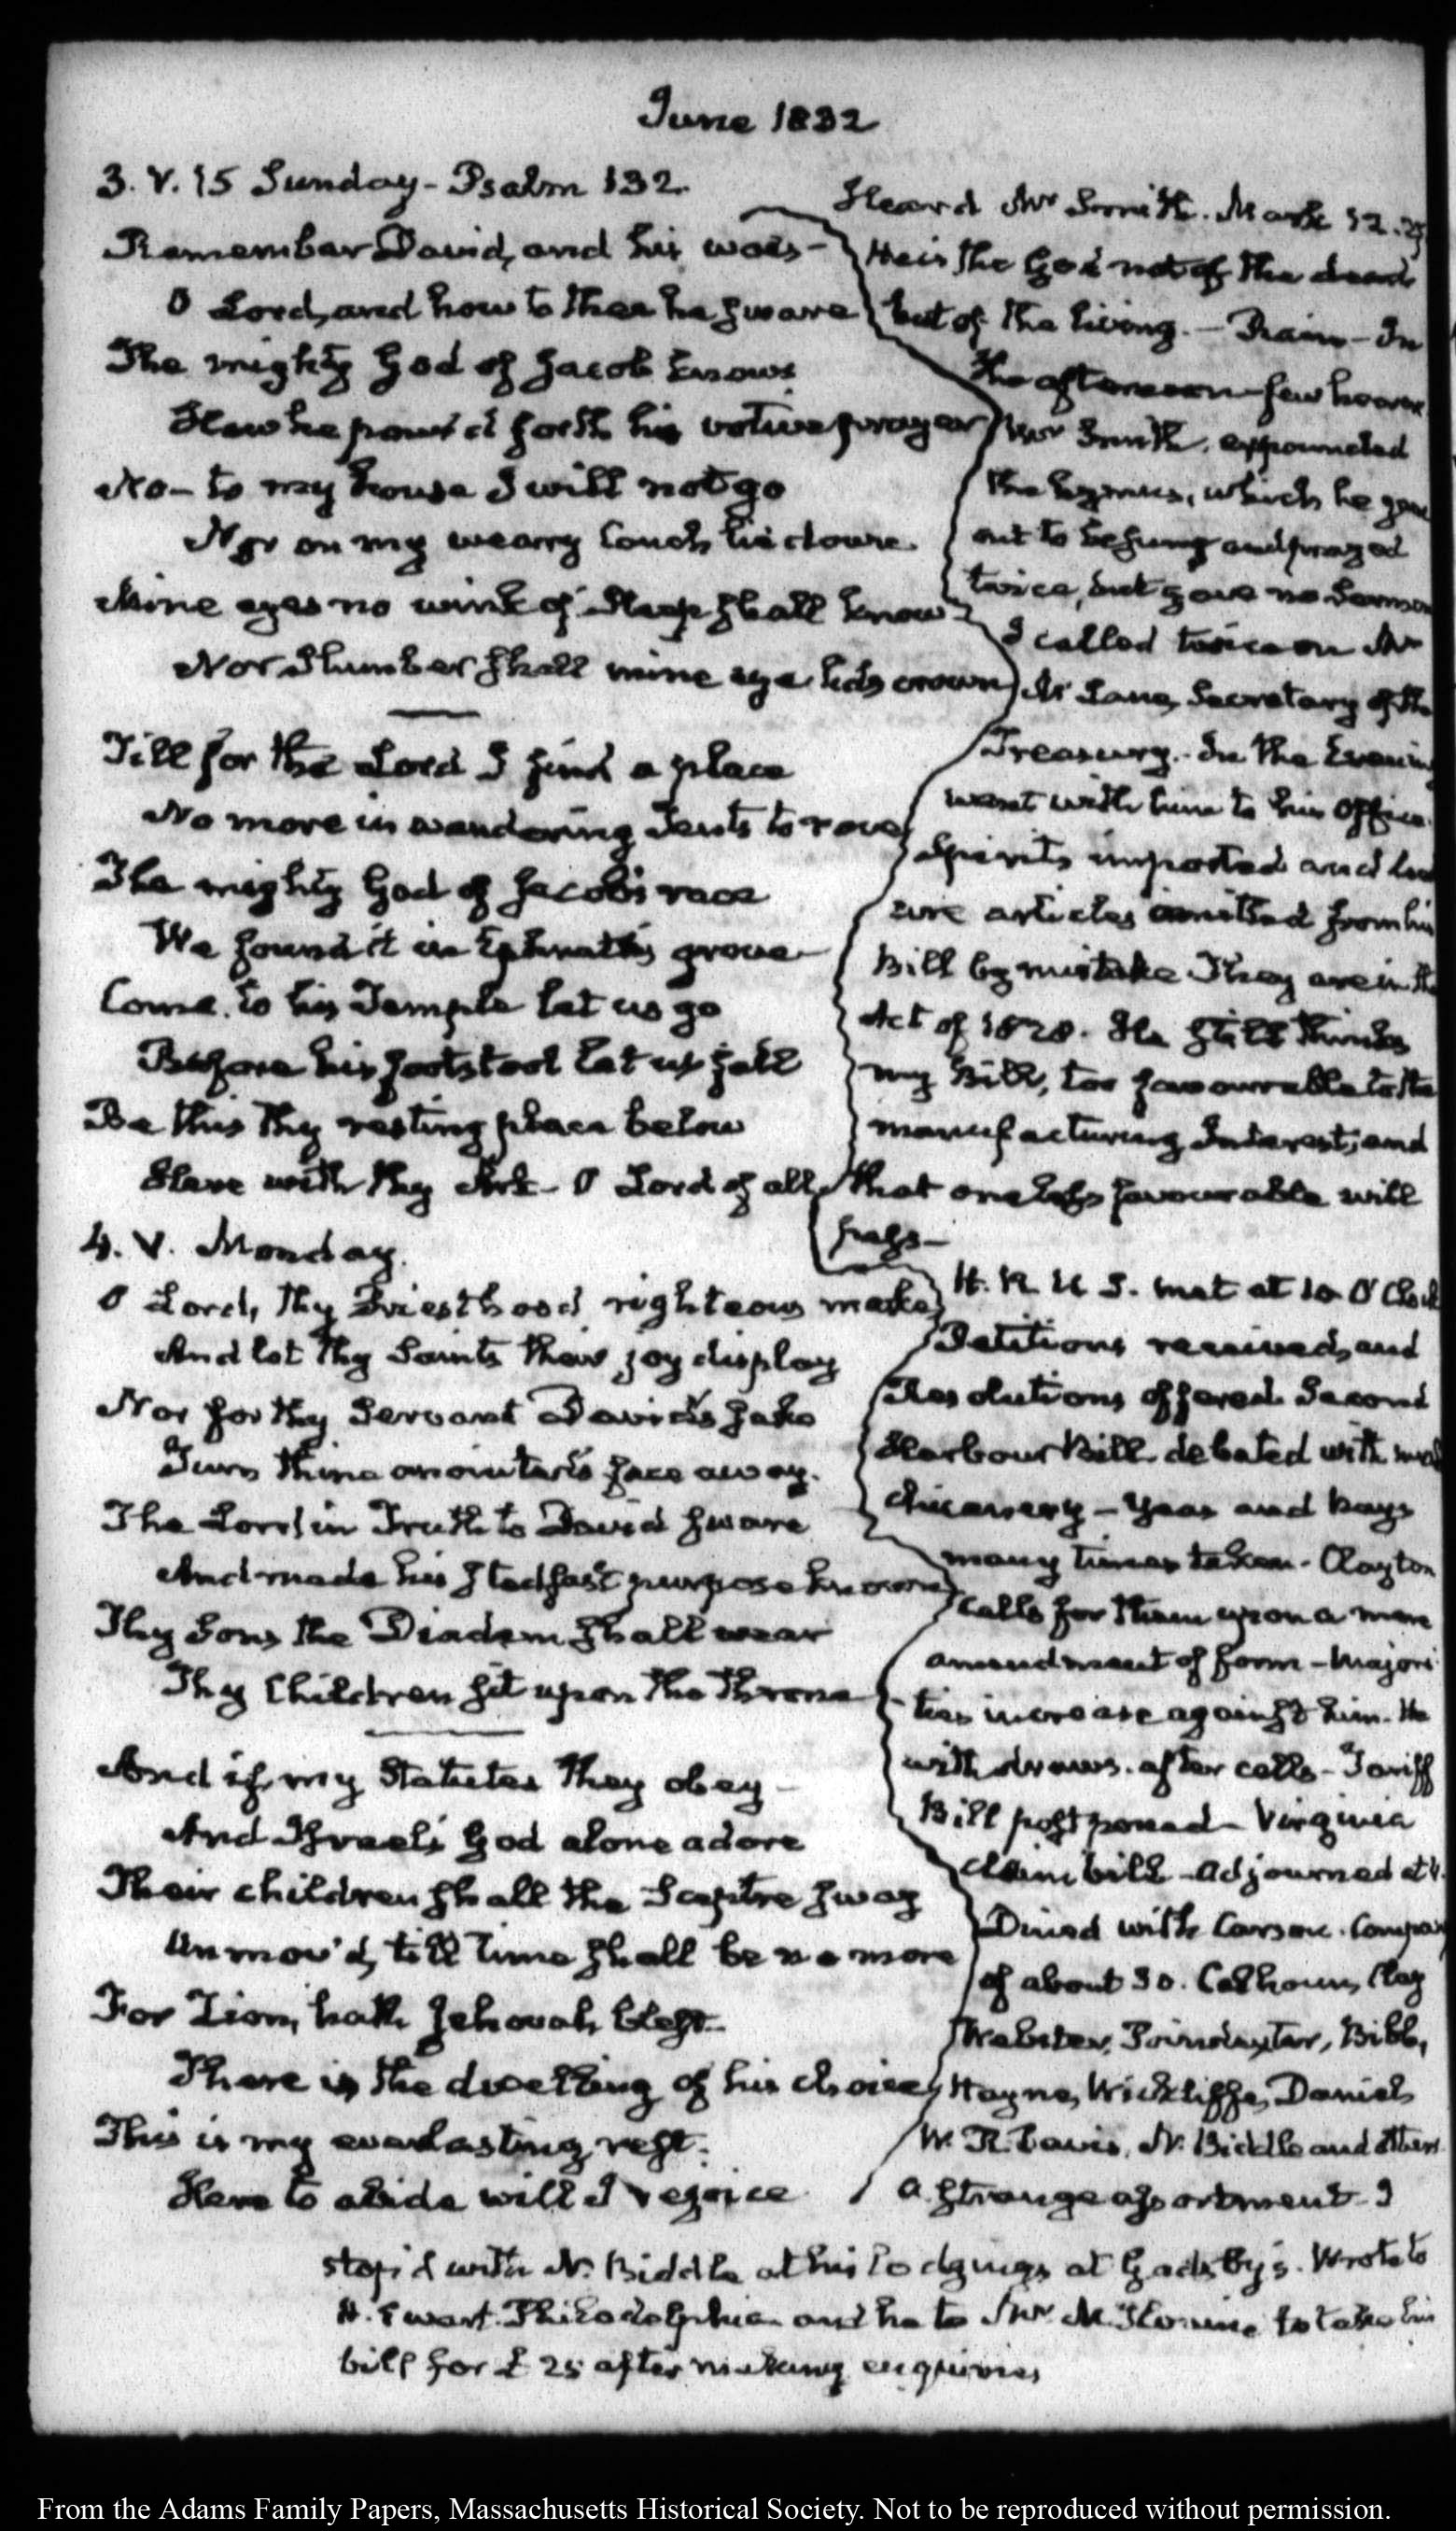 June 1832
3. V. 15 Sunday - Psalm 132.
Remember David, and his woes -
O Lord, and how to thee he sware
The mighty God of Jacob knows
How he pour'd forth his votive prayer
No - to my house I will not go
Nor on my weary Couch lie down.
Mine eyes no wink of Sleep shall know
Nor Slumber shall mine eye lids crown
Till for the Lord I find a place
No more in wandering Tents to rove
The mighty God of Jacob's race
We found it in Ephrata's grove
Come. to his Temple let us go
Before his footstool let us fall
Be this thy resting place below
Here with thy Ark - O Lord of all
Heard Mr Smith. Mark 12.27
He is the God not of the dead
but of the living. - Rain - In
the afternoon few hearers
Mr Smith. expounded
the hymns, which he gave
out to be sung and prayed
twice, but gave no Sermon
I called twice on Mr
McLane, Secretary of the
Treasury. In the Evening
went with him to his Office.
Spirits imported and
are articles omitted from his
Bill by mistake They are in the
Act of 1828. He still thinks
my Bill, too favourable to the
manufacturing Interest, and
that one less favourable will
pass -
4. V. Monday.
O Lord, thy Priesthood righteous make
And let thy Saints their joy display
Nor for thy Servant David's sake
Turn thine anointed's face away.
The Lord in Truth to David sware
And made his stedfast purpose known
Thy Sons the Diadem shall wear
Thy Children sit upon the Throne
And if my Statutes they obey -
And Israel's God alone adore
Their children shall the Sceptre sway
Unmov'd, till time shall be no more
For Zion, hath Jehovah blest
There is the dwelling of his choice
This is my everlasting rest.
Here to abide will I rejoice
H. R. U S. met at 10 O'Clock
Petitions received, and
Resolutions offered. Second
Harbour Bill debated with much
chicanery - Yeas and Nays
many times taken - Clayton
calls for them upon a mere
amendment of form - Majori
ties increase against him. He
withdraws. after calls - Tariff
Bill postponed - Virginia
claim bill - adjourned at 4.
Dined with Carson. Company
of about 30. Calhoun, Clay
Webster, Poindexter, Bibb,
Hayne, Wickliffe, Daniel,
W. R. Davis, N. Biddle and others
a strange assortment - I
stop'd with N. Biddle at his lodgings at Gadsby's. Wrote to
H. Ewart. Philadelphia and he to Mr to take his
bill for £ 25 after making enquiries
From the Adams Family Papers, Massachusetts Historical Society. Not to be reproduced without permission.